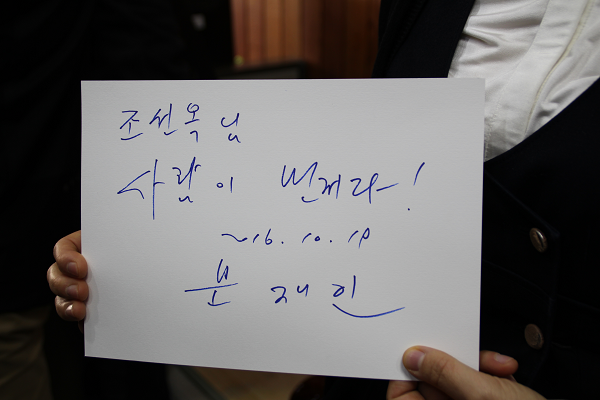 조선옥 님
사람이 먼저다!
2016. 10. 19
문재인